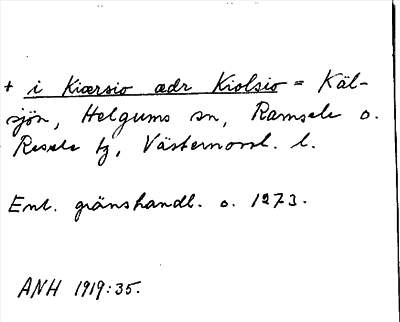 + i Kiærsio ædr Kiolsio = Käl-
sjön, Helgums sn, Ramsele o.
Resele tg, Västernorrl. l.
Enl. gränshandl. o. 1273.
ANH 1919:35.